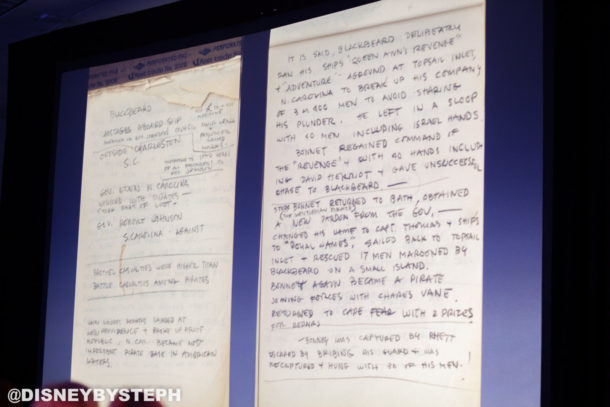 BLACKBEARD
HOSTAGES ABOARD SHIP
OUTSIDE CHARLESTON
S.C.
GOV. EDEN N CAROLINA
WORKED WITH PIRATES —
GOV. ROBERT JOHNSON
S. CAROLINA - AGAINST
BROTHEL CASUALTIES WERE HIGHER THAN
BATTLE CASUALTIES AMONG PIRATES
WHEN WOODES ROGERS LANDED AT
NEW PROVIDENCE & BROKE UP PIRATE
REPUBLIC, N. CAR. BECAME MOST
IMPORTANT PIRATE BASE IN AMERICAN
WATERS.
IT IS SAID, BLACKBEARD DELIBERATLY
RAN HIS SHIPS "QUEEN ANN'S REVENGE"
& "ADVENTURE" AGROUND AT TOPSAIL INLET,
N. CAROLINA TO BREAK UP HIS COMPANY
OF 300 MEN TO AVOID SHARING
HIS PLUNDER. HE LEFT IN A SLOOP
WITH 40 MEN INCLUDING ISRAEL HANDS
BONNET REGAINED COMMAND OF
THE "REVENGE" & WITH 40 HANDS INCLUD
ING DAVID HERRIOT & GAVE UNSUCCESSFUL
CHASE TO BLACKBEARD. —
STEDE BONNET RETURNED TO BATH, OBTAINED
(THE GENTLEMAN PIRATE)
A NEW PARDON FROM THE GOV. —
CHANGED HIS NAME TO CAPT. THOMAS & SHIPS
TO "ROYAL JAMES", SAILED BACK TO TOPSAIL
INLET & RESCUED 17 MEN MAROONED BY
BLACKBEARD ON A SMALL ISLAND.
BONNET AGAIN BECAME A PIRATE
JOINING FORCES WITH CHARLES VANE.
RETURNED TO CAPE FEAR WITH 2 PRIZES
FOR REPAIRS
- BONNET WAS CAPTURED BY RHETT
ESCAPED BY BRIBING HIS GUARD & WAS
RECAPTURED & HUNG WITH 30 OF HIS MEN.
@DISNEYBYSTEPH